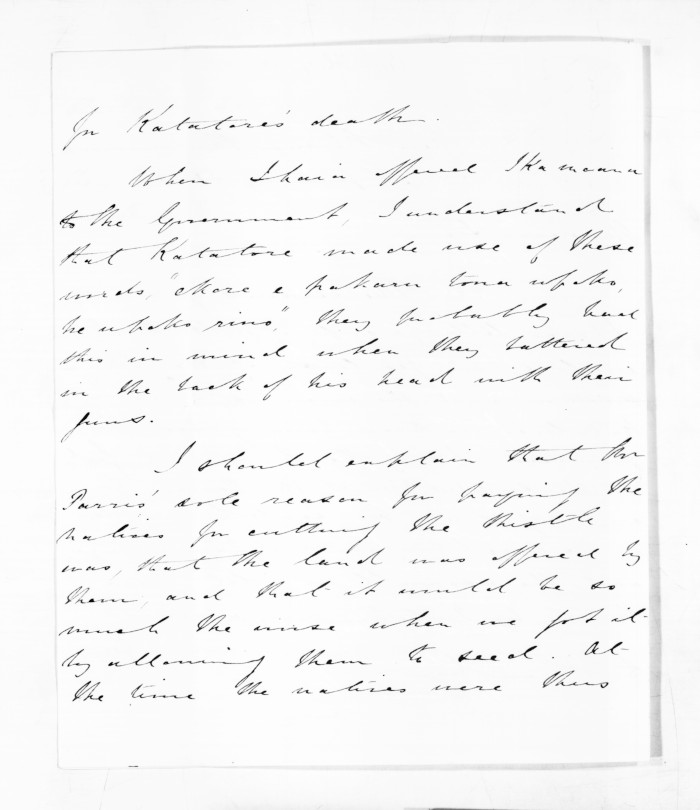 for Katatore's death.
When Ihaia offered Ikamoana
to the Government, I understand
that Katatore made use of these
words, "Mare e pakaru tona upoko,
he upoko rino", they probably had
this in mind when they battered
in the back of his head with their
guns.
I should explain that Mr
Parris' sole reason for paying the
natives for cutting the thistle
was, that the land was offered by
them, and that it would be so
much the worse when we got it
by allowing them to seed. At
the time the natives were thus